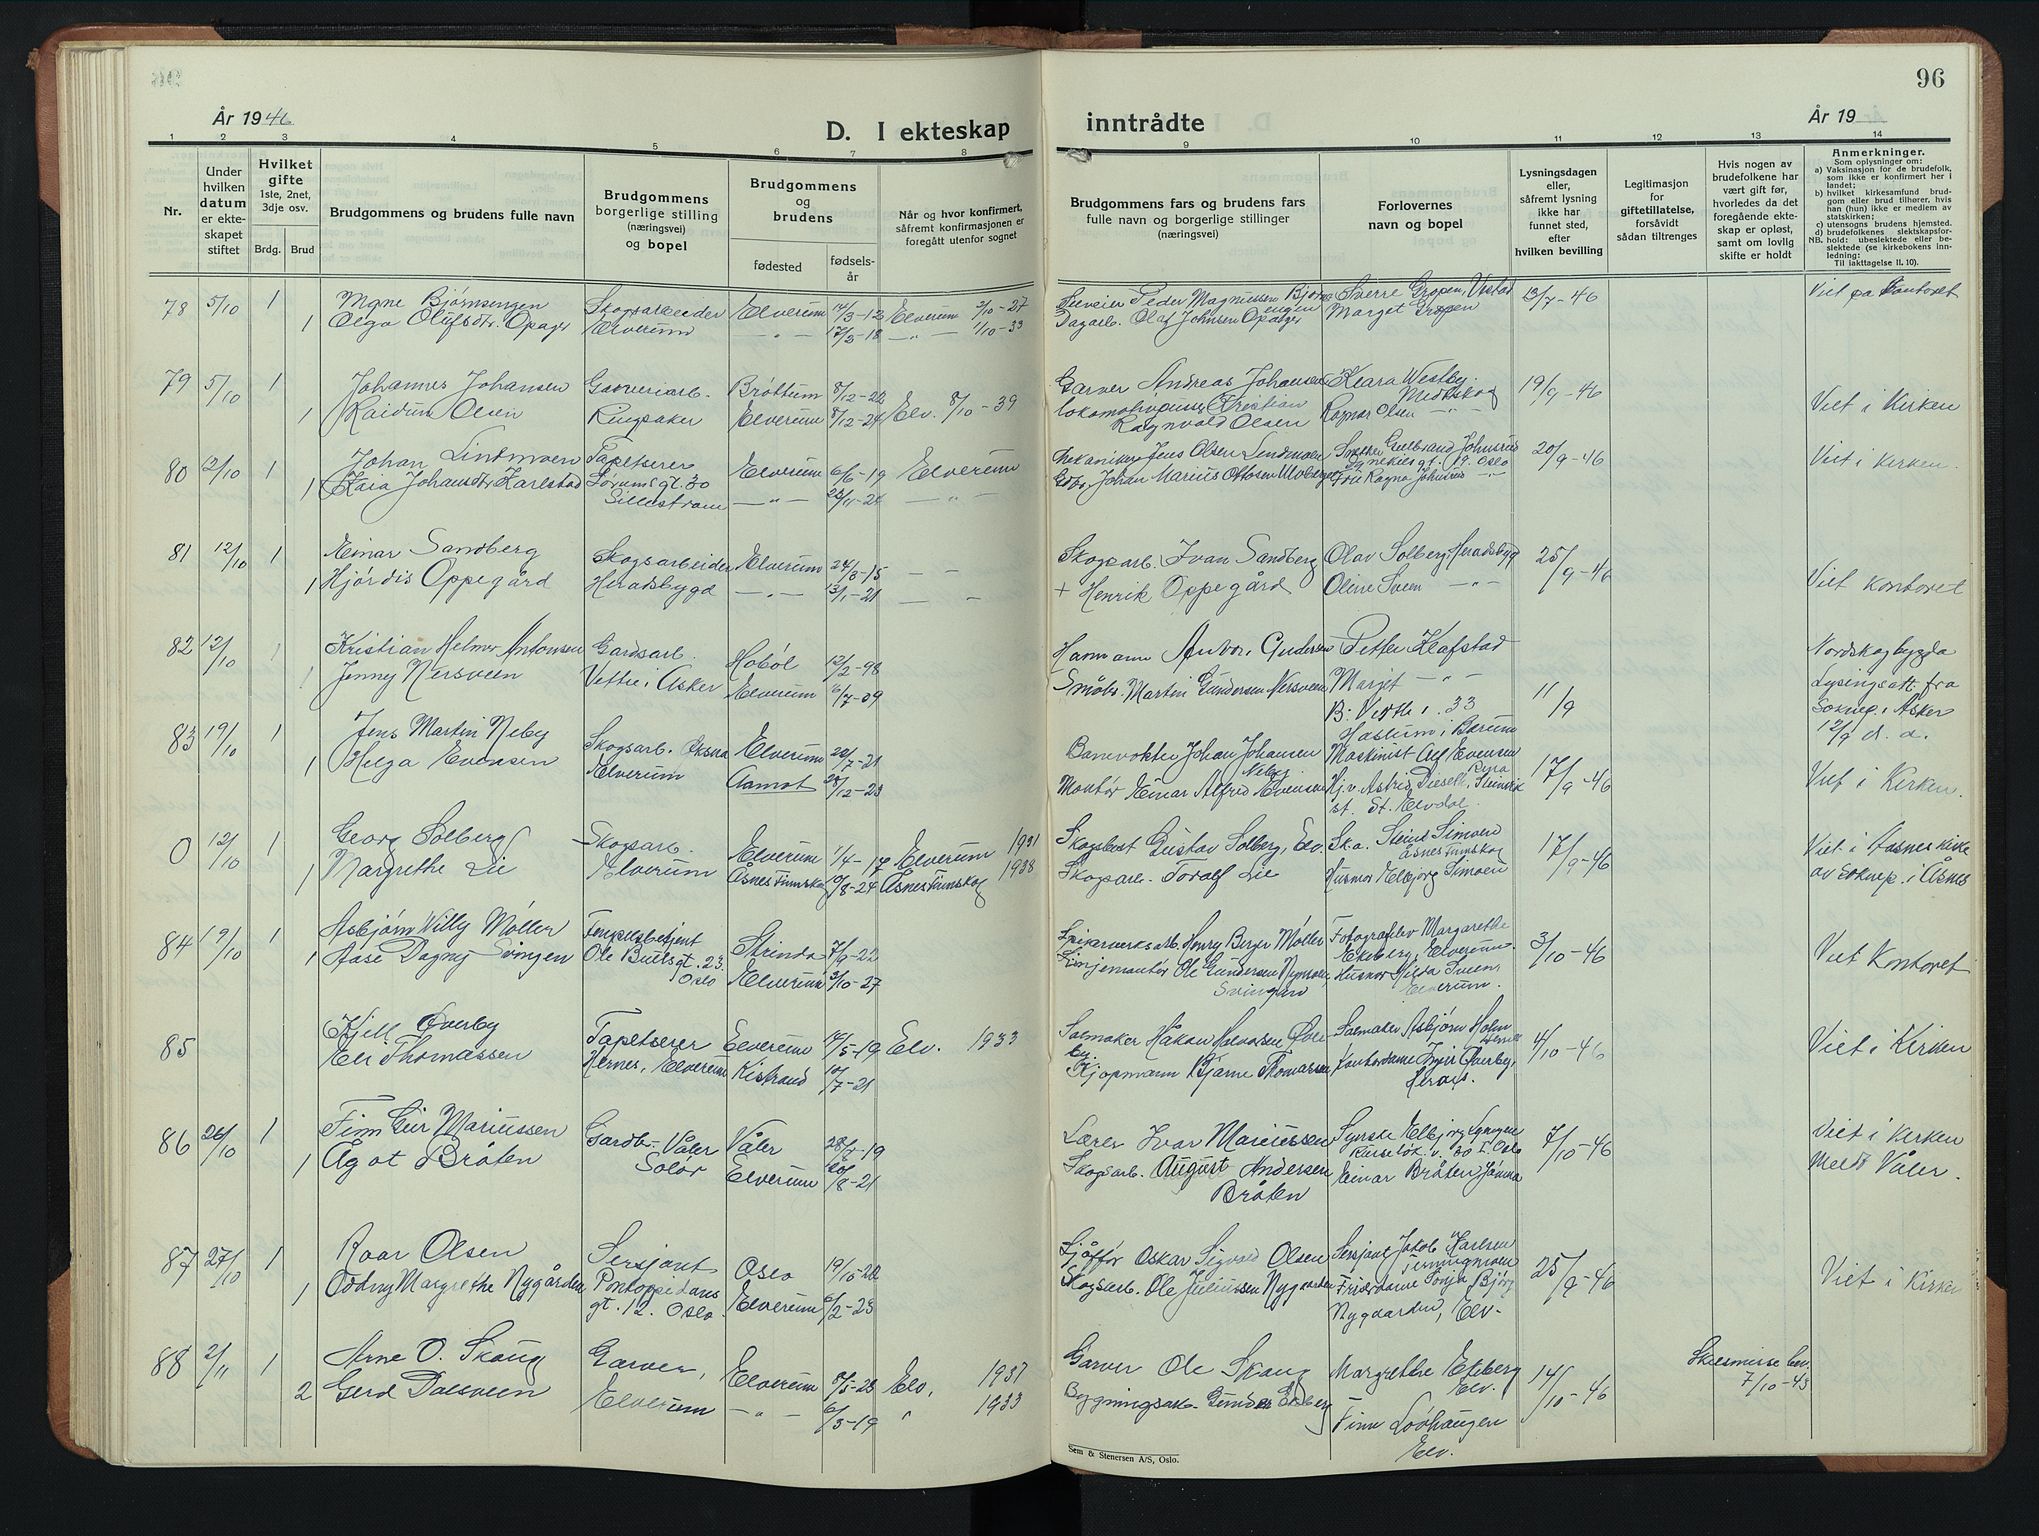 96
År 1946
D. I ekteskap inntrådte
År 19
1 2 3 4 5 6 7 8 9 10 11 12 13 14
Nr.
Under hvilken datum er ekteskapet stiftet
Hvilket gifte 1ste, 2net, 3dje osv.
Brdg. Brud
Brudgommens og brudens fulle navn
Brudgommens borgerlige stilling (næringsvei) og bopel
Brudgommens og brudens
fødested
fødselsår
Når og hvor konfirmert, såfremt konfirmasjonen er foregått utenfor sognet
Brudgommens fars og brudens fars fulle navn og borgerlige stillinger (næringsvei)
Forlovernes navn og bopel
Lysningsdagen eller, såfremt lysning ikke har funnet sted, efter hvilken bevilling
Legitimasjon for giftetillatelse, forsåvidt sådan tiltrenges
Hvis nogen av brudefolkene har vært gift før, hvorledes da det foregående ekteskap er opløst, samt om lovlig skifte er holdt
Anmerkninger.
Som oplysninger om:
a) Vaksinasjon for de brudefolk, som ikke er konfirmert her i landet;
b) hvilket kirkesamfund brudgom eller brud tilhører, hvis han (hun) ikke er medlem av statskirken;
c) utensogns brudens hjemsted.
d) brudefolkenes slektskapsforhold: ubeslektede eller beslektede (se kirkebokens innledning:
NB. Til iakttagelse II. 10).
78 5/10 1 Magne Bjørnsengen Skogsarbeider Elverum 14/3-12 Elverum 2/10-27 Peder Magnussen Bjørnsengen Sverre Gropen, 13/7-46 Viet på kontoret
1 Olga Olufsdtr. Opager Elverum -"- 17/3-18 -"- 1/10-33 Dagarb. Olaf Johnsen Opager Marget Gropen
79 5/10 1 Johannes Johansen Garveriarb. Brøttum 8/12-22 Garver Andreas Johansen Klara Westby, Midtskog 19/9-46
1 Raidun Olsen Ringsaker Elverum 8/12-24 Elv. 8/10-39 Kristian Ragnvald Olsen Ragnar Olsen -"- Viet i Kirken
80 12/10 1 Johan Lindmoen Tapetserer Elverum 6/6-19 Elverum Mekaniker Jens Olsen Lindmoen Gulbrand Johnsrud Oslo 20/9-46 Viet i kirken.
1 Klara Johansdtr. Karlstad gt. 30 Lillestrøm -"- 23/11-24 -"- Johan Marius Ottosen Fru Ragna Johnsrud -"-
81 12/10 1 Einar Sandberg Skogsarbeider Elverum 24/8-15 - - Skogsarb. Ivar Sandberg Olav Solberg, Heradsbygd 25/9-46
1 Hjördis Oppegård Heradsbygd -"- 13/1-21 - - + Henrik Oppegård Oline Sveen -"- Viet kontoret
82 12/10 1 Kristian Helmer Antonsen Gardsarb. Hobøl 12/2-98 Gundersen Petter Klafstad Nordskogbygda
1 Jenny Nersveen Vettre i Asker Elverum 6/7-09 Småbr. Martin Gundersen Nersveen Marget -"- 11/9 Lysingsatt. fra Soknep. i Asker 12/9 d. a.
83 19/10 1 Jens Martin Neby Skogsarb. Øksna Elverum 20/7-21 Banevokter Johan Johansen Neby Haslum i Bærum Maskinist Alf Evensen 17/9-46
1 Helga Evensen Elverum Aamot 28/12-23 Montør Einar Alfred Evensen Astrid Elvdal Viet i Kirken.
0 12/10 1 Georg Solberg Skogsarb. Elverum 1/4-17 Elverum 1931 Gustav Solberg, Elv. Simoen Åsnes Finnskog 17/9-46 Viet i Aasnes kirke
1 Margrethe Lie Elverum Åsnes Finnskog 10/8-24 Åsnes Finnskog 1938 Skogsarb. Toralf Lie Husmor Elbjørg Simoen av sokнep. i Åsnes
84 19/10 1 Asbjørn Willy Møller Fengselsbetjent Strinda 7/9-22 Spikerverksarb. Henry Berger Møller Fotografelev Margarethe Ekeberg, Elverum. 3/10-46
1 Aase Dagny Svingen Ole Bullsgt. 23. Oslo Elverum 3/10-27 Linjemontør Ole Gundersen Svingen Husmor Hilda Sveen Elverum. Viet Kontoret
85 Kjell Øverby Tapetserer Elverum 14/5-19 Elv. 1933 Salmaker Håkon Halvorsen Øverby Salmaker Asbjørn Holm 4/10-46 Viet i Kirken
Eli Thomassen Hernes, Elverum Kistrand 10/7-21 Kjøpmann Bjarne Thomassen Kontordame Øverby,
86 26/10 1 Finn Geir Mariussen Gardb. Våler Solør Våler 28/2-19 Lærer Ivar Mariussen Oslo 7/10-46 Viet i kirken
1 Ågot Bråten Elverum 20/8-21 Skogsarb. August Andersen Bråten Einar Bråten, Jømna Meldt Våler.
87 27/10 1 Roar Olsen Sersjant Oslo 19/10-20 Sjåfør Oskar Sigvald Olsen Sersjant Jakob Karlsen 25/9-46
1 Oddny Margrethe Nygården Pontoppidans gt. 12. Oslo Elverum 6/2-23 Skogsarb. Ole Juliussen Nygaarden Frisørdame Sonja Bjørg Nygaarden, Elv. Viet i Kirken
88 2/11 1 Arne O. Skaug Garver, Elverum 8/5-23 Elv. 1937 Garver Ole Skaug Margrethe Ekeberg Elv. 14/10-46 Skilsmisse bev. 7/10-43
2 Gerd Dalsveen Elverum -"- 6/3-19 " 1933 Bygningsarb. Gunder Finn Løvhaugen Elv.
Sem & Stenersen A/S, Oslo.